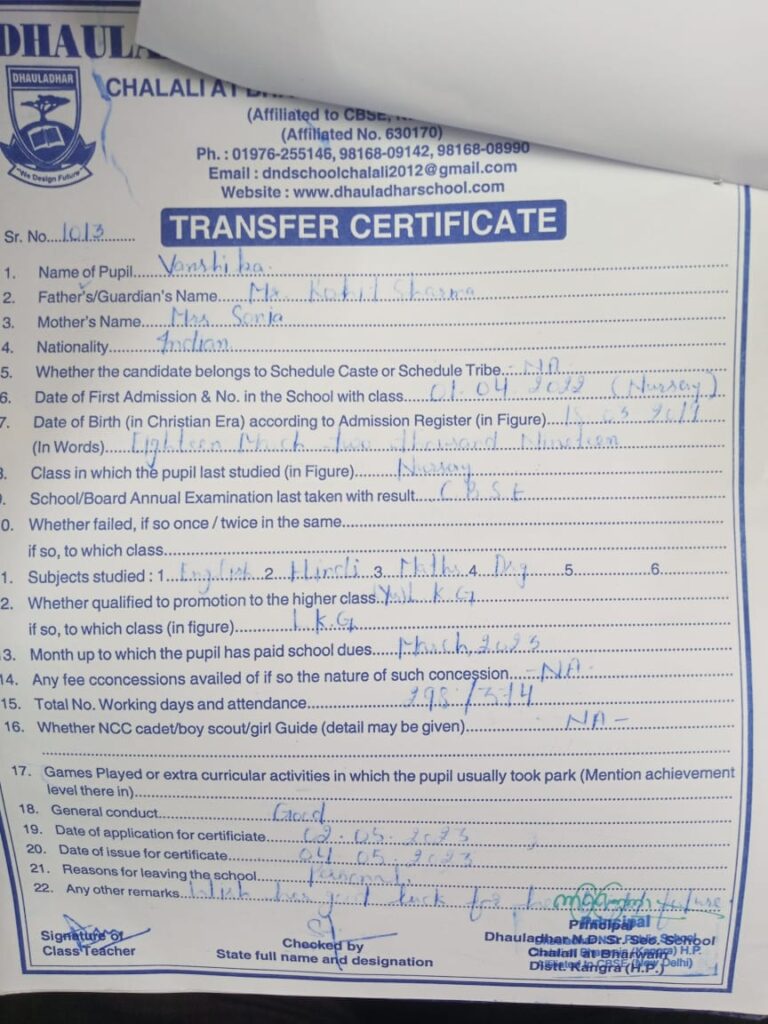 DHAULA
DHAULADHAR
"We Design Future"
CHALALI AT
(Affiliated to CBSE,
(Affiliated No. 630170)
Ph. : 01976-255146, 98168-09142, 98168-08990
Email : dndschoolchalali2012@gmail.com
Website : www.dhauladharschool.com
Sr. No....1013
TRANSFER CERTIFICATE
1. Name of Pupil Vanshika
2. Father's/Guardian's Name Mr. Rohit Sharma
3. Mother's Name Mrs Sonia
4. Nationality Indian
5. Whether the candidate belongs to Schedule Caste or Schedule Tribe - NA
6. Date of First Admission & No. in the School with class 01.04.2022 (Nursay)
7. Date of Birth (in Christian Era) according to Admission Register (in Figure) 18.03.2019
(In Words) Eighteen March two thousand Nineteen
Class in which the pupil last studied (in Figure) Nursay
School/Board Annual Examination last taken with result C.B.S.E
0. Whether failed, if so once / twice in the same
if so, to which class
1. Subjects studied : 1 English 2 Hindi 3 Maths 4 Drg 5 6.
2. Whether qualified to promotion to the higher class K.G
if so, to which class (in figure) L.K.G
3. Month up to which the pupil has paid school dues March, 2023
14. Any fee cconcessions availed of if so the nature of such concession - NA -
15. Total No. Working days and attendance 298/314
16. Whether NCC cadet/boy scout/girl Guide (detail may be given) NA -
17. Games Played or extra curricular activities in which the pupil usually took park (Mention achievement
level there in)
18. General conduct Good
19. Date of application for certificiate 02.05.2023
20. Date of issue for certificate 04.05.2023
21. Reasons for leaving the school personal
22. Any other remarks Wish her good luck for future
Signature of
Class Teacher
Checked by
State full name and designation
Principal
Principal
Dhauladhar N.D. Sr. Sec. School
Chalali at Bharwain
Distt. Kangra (H.P.)
(Kangra) H.P.
to CBSE (New Delhi)